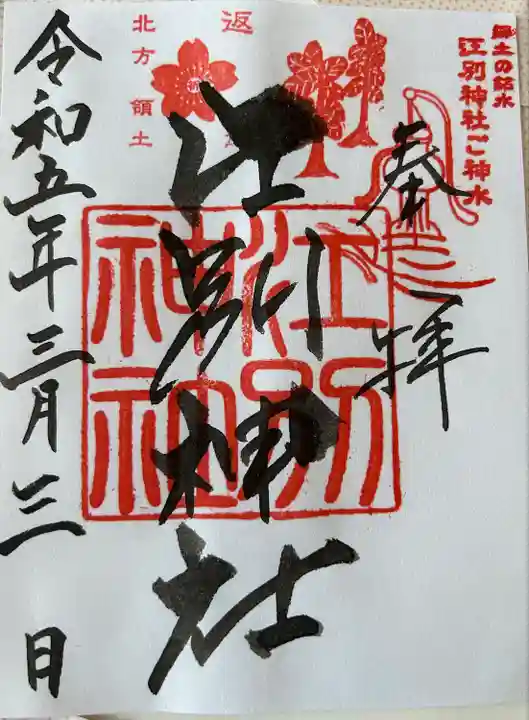 郷土の銘水
江別神社ご神水
奉拝
返
北方領土
江別神社
江別
神社
令和五年三月三日